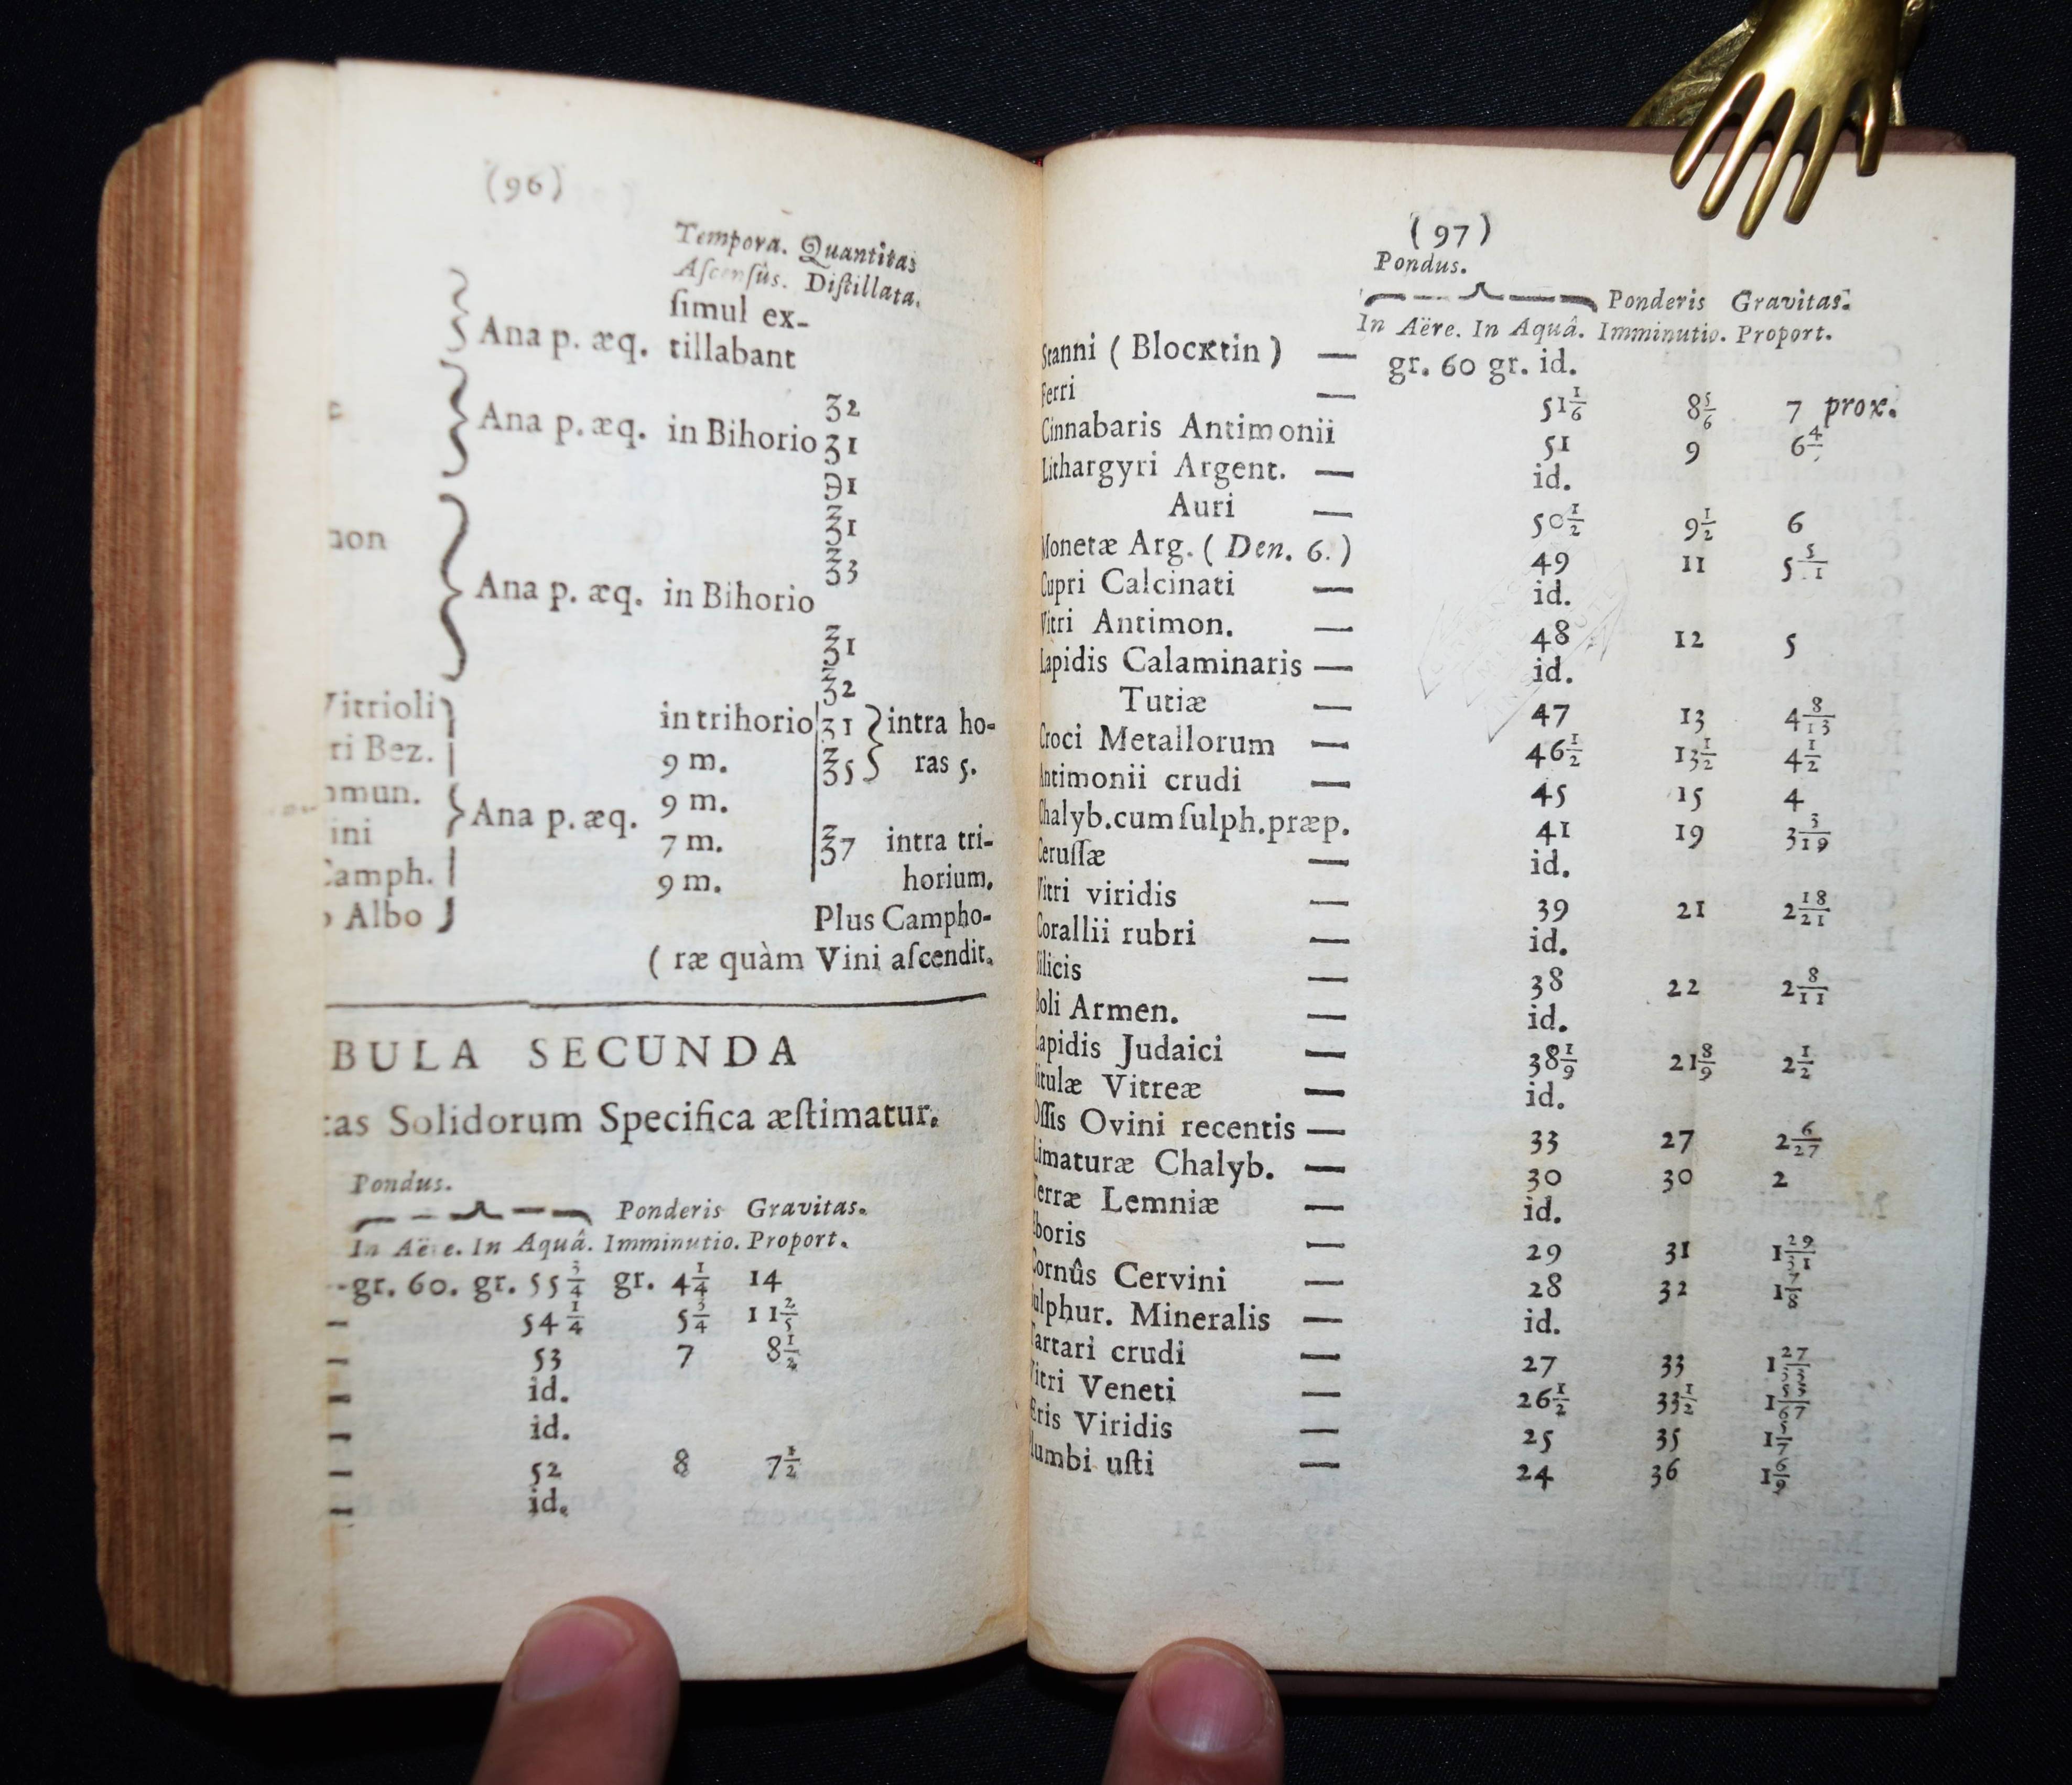 (96)
Tempora. Quantitas
Aſcenſûs. Diſtillata.
ſimul ex-
Ana p. æq. tillabant
ʒ2
Ana p. æq. in Bihorio ʒ1
℈1
non ʒ1
ʒ3
Ana p. æq. in Bihorio
ʒ1
ʒ2
Vitrioli in trihorio ʒ1 intra ho-
ri Bez. 9 m. ʒ5 ras 5.
mmun. 9 m.
Ana p. æq.
ini 7 m. ʒ7 intra tri-
Camph. 9 m. horium.
o Albo Plus Campho-
( ræ quàm Vini aſcendit.
BULA SECUNDA
tas Solidorum Specifica æſtimatur.
Pondus.
Ponderis Gravitas.
In Aëre. In Aquâ. Imminutio. Proport.
gr. 60. gr. 55 3/4 gr. 4 1/4 14
54 1/4 5 3/4 11 2/5
53 7 8 1/2
id.
id.
52 8 7 1/2
id.
(97)
Pondus.
Ponderis Gravitas.
In Aëre. In Aquâ. Imminutio. Proport.
Stanni ( Blocktin ) — gr. 60 gr. id.
Ferri — 51 1/6 8 5/6 7 prox.
Cinnabaris Antimonii 51 9 6
Lithargyri Argent. — id.
Auri — 50 1/2 9 1/2 6
Monetæ Arg. ( Den. 6. ) 49 11 5
Cupri Calcinati — id.
Vitri Antimon. — 48 12 5
Lapidis Calaminaris — id.
Tutiæ — 47 13 4 8/13
Croci Metallorum — 46 1/2 13 1/2 4 1/2
Antimonii crudi — 45 15 4
Chalyb. cum ſulph. præp. 41 19 3 3/19
Ceruſſæ — id.
Vitri viridis — 39 21 2 18/21
Corallii rubri — id.
Silicis — 38 22 2 8/11
Boli Armen. — id.
Lapidis Judaici — 38 1/9 21 8/9 2 1/2
Situlæ Vitreæ — id.
Oſſis Ovini recentis — 33 27 2 6/27
Limaturæ Chalyb. — 30 30 2
Terræ Lemniæ — id.
Eboris — 29 31 1 29/31
Cornûs Cervini — 28 32 1 7/8
Sulphur. Mineralis — id.
Tartari crudi — 27 33 1 27/33
Vitri Veneti — 26 1/2 33 1/2 1 53/67
Æris Viridis — 25 35 1 5/7
Plumbi uſti — 24 36 1 6/9